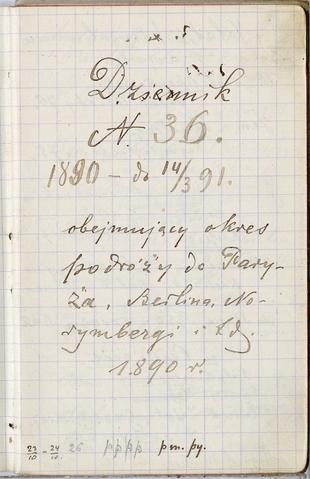 Dziennik
N. 36.
1890 – do 14/3 91.
obejmujący okres
podróży do Pary-
ża, Berlina, No-
rymbergi i t.d.
1890 r.
23/10 – 24/10. 26 pppp pm. py.